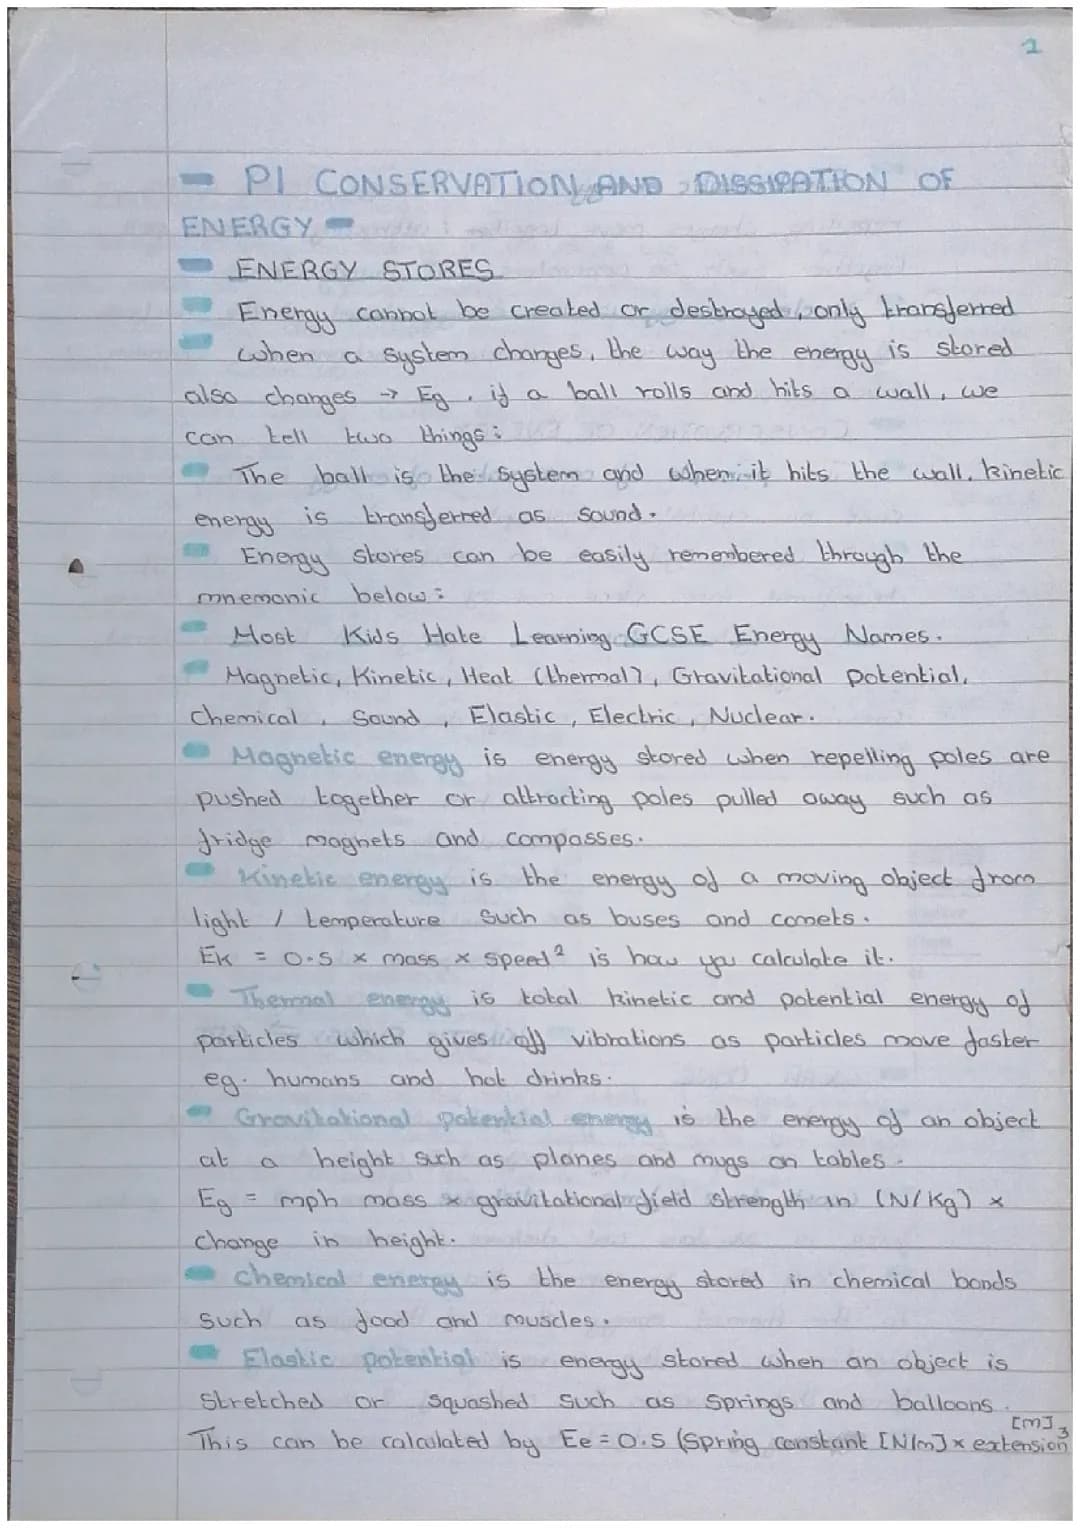 1
P1 CONSERVATION AND DISSIPATION OF
ENERGY
ENERGY STORES
Energy cannot be created or destroyed, only transferred
when a system changes, the way the energy is stored
also changes → Eg. if a ball rolls and hits a wall, we
can tell two things:
The ball is the system and when it hits the wall, kinetic
energy is transferred as sound.
Energy stores can be easily remembered through the
mnemonic below:
Most Kids Hate Learning GCSE Energy Names.
Magnetic, Kinetic, Heat (thermal), Gravitational potential,
Chemical, Sound, Elastic, Electric, Nuclear.
Magnetic energy is energy stored when repelling poles are
pushed together or attracting poles pulled away such as
fridge magnets and compasses.
Kinetic energy is the energy of a moving object from
light / temperature such as buses and comets.
Ek = 0.5 x mass x speed² is how you calculate it.
Thermal energy is total kinetic and potential energy of
particles which gives off vibrations as particles move faster
eg. humans and hot drinks.
Gravitational potential energy is the energy of an object
at a height such as planes and mugs on tables.
Eg = mph mass x gravitational field strength in (N/Kg) x
change in height.
Chemical energy is the energy stored in chemical bonds
such as food and muscles.
Elastic potential is energy stored when an object is
stretched or squashed such as springs and balloons.
[m]
This can be calculated by Ee = 0.5 (spring constant [N/m] x extension³